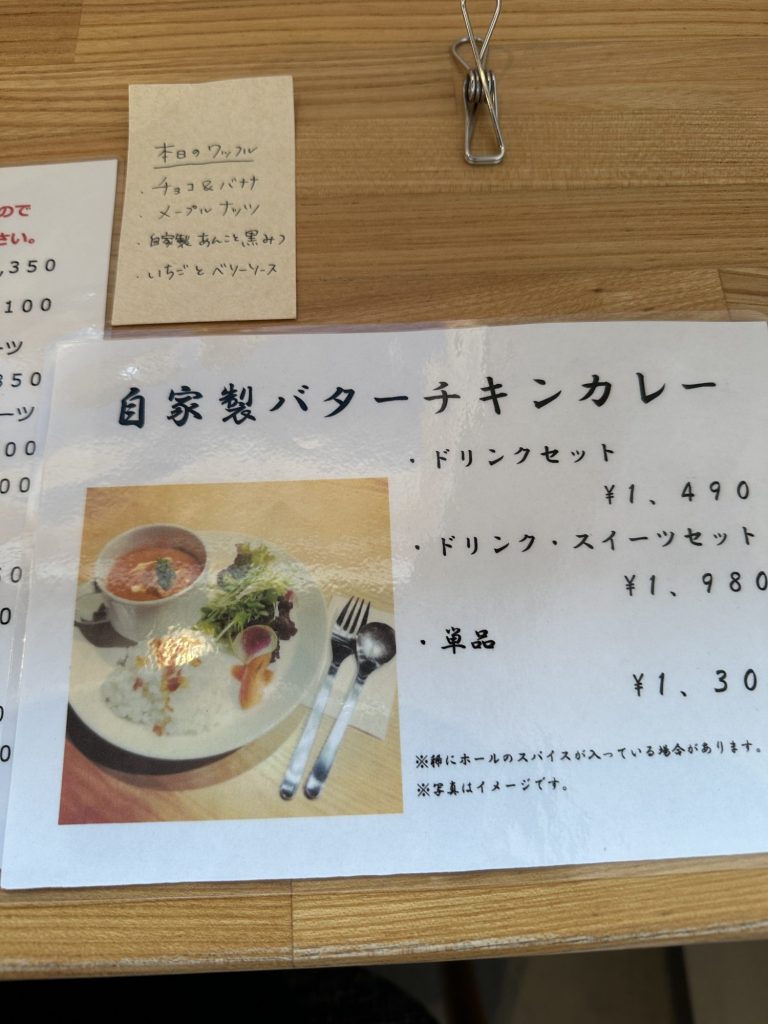 本日のワッフル
・チョコ&バナナ
・メープルナッツ
・自家製あんこと黒みつ
・いちごとベリーソース
ので
さい。
,350
100
ーツ
350
ーツ
00
00
50
0
0
0
自家製バターチキンカレー
・ドリンクセット
¥1、490
・ドリンク・スイーツセット
¥1、980
・単品
¥1、30
※稀にホールのスパイスが入っている場合があります。
※写真はイメージです。